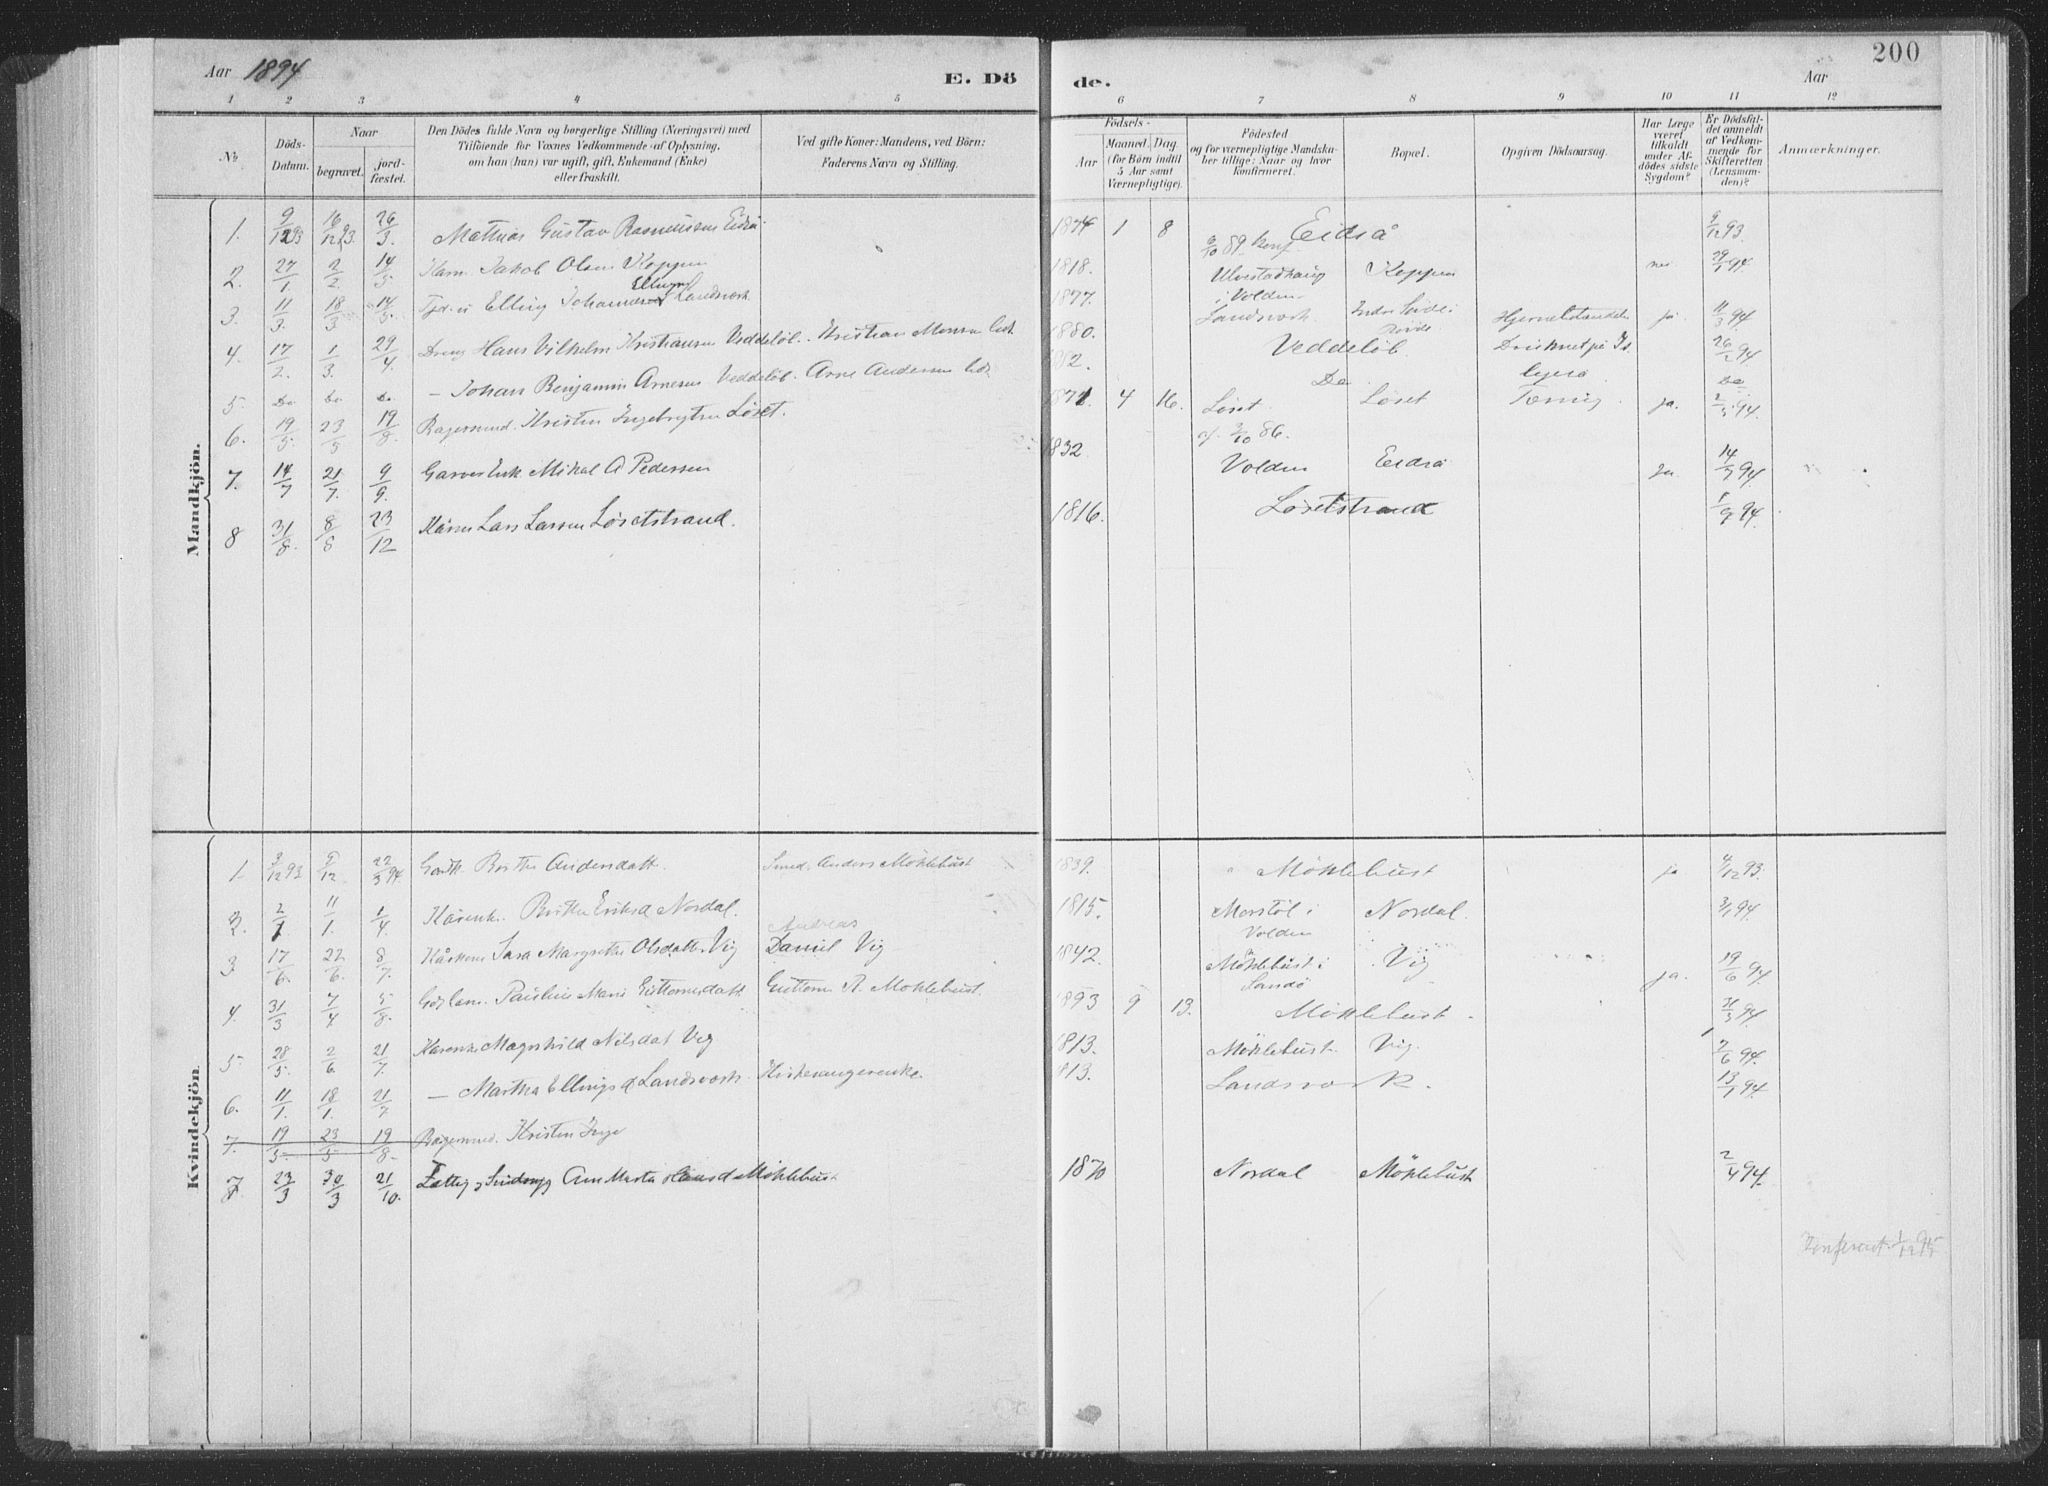 200
Aar 1894
E. Dö
de.
Aar
1 2 3 4 5
6 7 8 9 10 11 12
№
Döds-Datum.
Naar
begravet.
jord-fæstet.
Den Dödes fulde Navn og borgerlige Stilling (Næringsvei) med
Tilföiende for Voxnes Vedkommende af Oplysning,
om han (hun) var ugift, gift, Enkemand (Enke)
eller fraskilt.
Ved gifte Koner: Mandens, ved Börn:
Faderens Navn og Stilling.
Födsels-
Aar
Maaned. Dag.
(for Börn indtil
5 Aar samt
Værnepligtige).
Födested
og for værnepligtige Mandska-
ber tillige: Naar og hvor
konfirmeret.
Bopæl.
Opgiven Dödsaarsag.
Har Læge
været
tilkaldt
under Af-
dödes sidste
Sygdom?
Er Dödsfal-
det anmeldt
af Vedkom-
mende for
Skifteretten
(Lensman-
den)?
Anmærkninger.
Mandkjön.
1. 9/12 93 16/12 93. 26/3. Mathias Gustav Rasmussen Eidså 1874 1 8 Eidså 9/12 93.
2/10 89. konf.
2. 27/1. 2/2. 14/5. Kaarm. Jakob Olsen Koppen 1818. Ulvestadhaug i Volden Koppen nei 29/1 94.
3. 11/3. 18/3 14/5. Elling Johannes Ellings Landsverk 1877. Landsverk. Indre Hjernebetændelse ja 11/3 94
4. 17/2. 1/3. 29/4. Dreng Hans Vilhelm Kristiansen Veddeløb. Kristian Monsen 1880. Veddeløb. Druknet på Is. 26/2 94.
5. Do Do Do — Johan Benjamin Arnesen Veddeløb. Arne Andersen 1882. Do Do
6. 19/5. 23/5 19/8. Bagersvend. Kristen Ingebrigtsen Løset. 1871 4 16. Løset. Løset Tæring. ja. 2/5 94.
cf. 3/10 86.
7. 14/7 21/7. 9/9. Mikal A Pedersen 1832 Volden Eidså ja 14/7 94
8 31/8. 8/8 23/12 Kårm Lars Larsen Løsetstrand. 1816. Løsetstrand 1/9 94.
Kvindekjön
1. 3/12 93 9/12 22/3 94. Berthe Andersdatt. Smed. Anders Möklebust 1839. Möklebust ja 4/12 93.
2. 2/1 11/1. 1/4 Kårenk. Berthe Eriksd Nordal. 1815. Morstöl i Volden Nordal. 3/1 94.
Andreas
3. 17/6. 22/6. 8/7. Sara Margrethe Olsdatter Vig Daniel Vig 1842. Möklebust i Sandö Vig ja. 19/6 94.
4. 31/3 7/4 5/8. Pauline Marie Guttormsdatt. Guttorm R. Möklebust. 1893 9 13. Möklebust. 31/3 94
5. 28/5. 2/6 21/7. Kårenke Magnhild Nilsdat Vig 1813. Möklebust. Vig. 2/6 94.
6. 11/1. 18/1. 21/7 — Martha Ellingsd Landsverk. Kirkesangerenke. 1813. Landsverk. 13/1 94.
7. 19/5. 23/5 19/8 Bagersvend. Kristen Inge
7 23/3 30/3 21/10. Ane Marta Hansd Möklebust 1870 Nordal Möklebust 2/4 94.
Konfereret